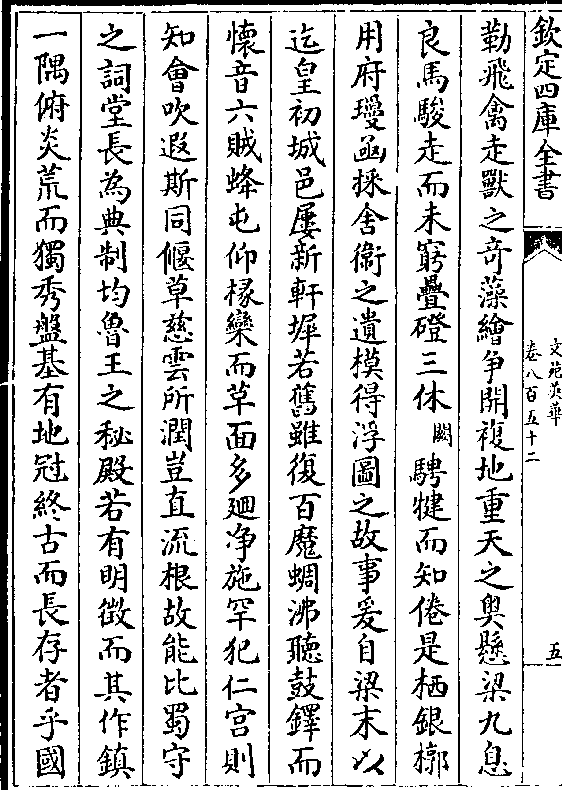 欽定四庫全書
文苑英華
卷八百五十二
五
勒飛禽走獸之奇藻繪争開複地重天之輿懸梁九息
良馬駿走而未窮疊磴三休闕騁犍而知倦是栖銀槨
用府璎函採舍衞之遺模得浮圖之故事爰自梁末以
迄皇初城邑屢新軒墀若舊雖復百魔蜩沸聽鼓鐸而
懷音六賊蜂屯仰椽欒而草面多廻浄施罕犯仁宫則
知會吹遐斯同偃草慈雲所潤豈直流根故能比蜀守
之詞堂長為典制均魯王之秘殿若有明徴而其作鎮
一隅俯炎荒而獨秀盤基有地冠終古而長存者乎國